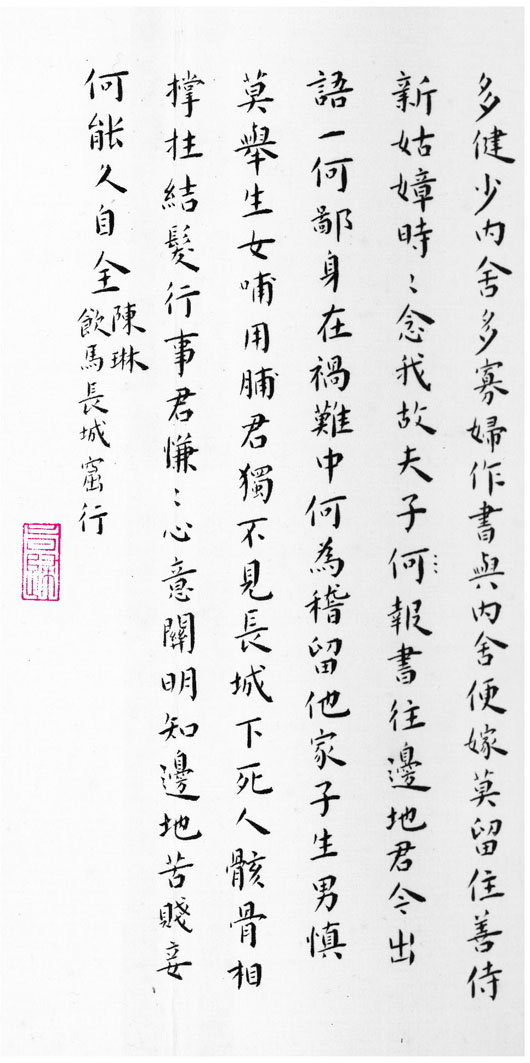 多健少內舍多寡婦作書與內舍便嫁莫留住善侍
新姑嫜時〻念我故夫子何報書往邊地君今出
語一何鄙身在禍難中何為稽留他家子生男慎
莫舉生女哺用脯君獨不見長城下死人骸骨相
撐拄結髮行事君慊〻心意關明知邊地苦賤妾
何能久自全
陳琳
飲馬長城窟行